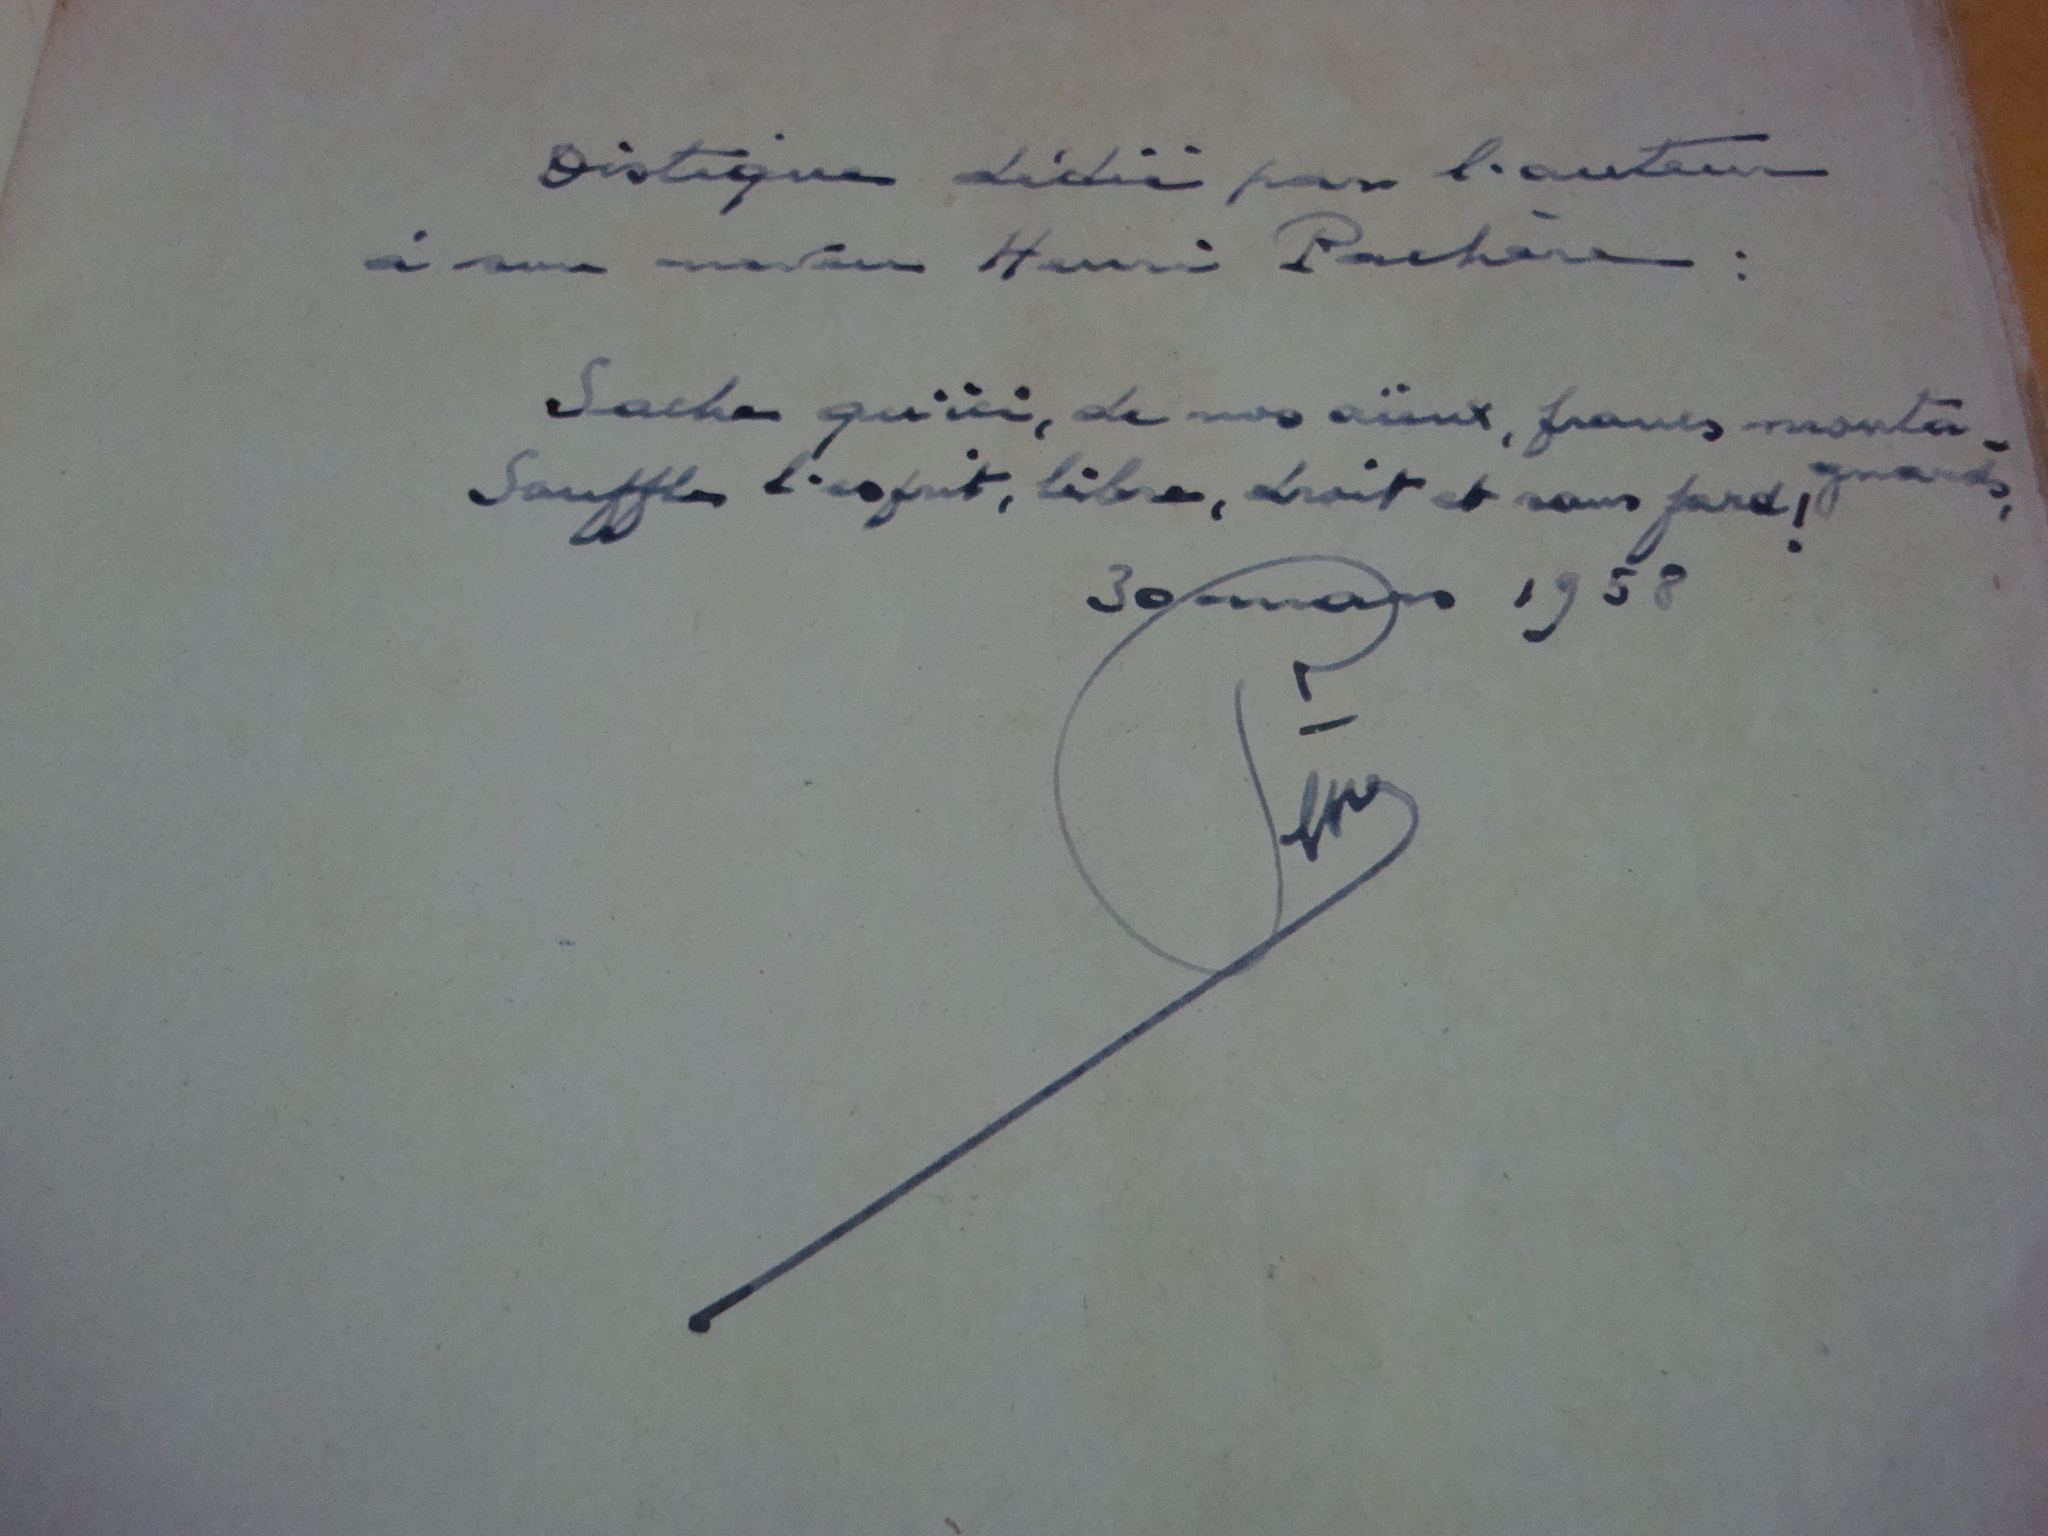 Distique dédié par l'auteur
à son neveu Henri Pachère :
Sache qu'ici, de nos aïeux, francs monta-
gnards,
Souffle l'esprit, libre, droit et sans fard !
30 mars 1958